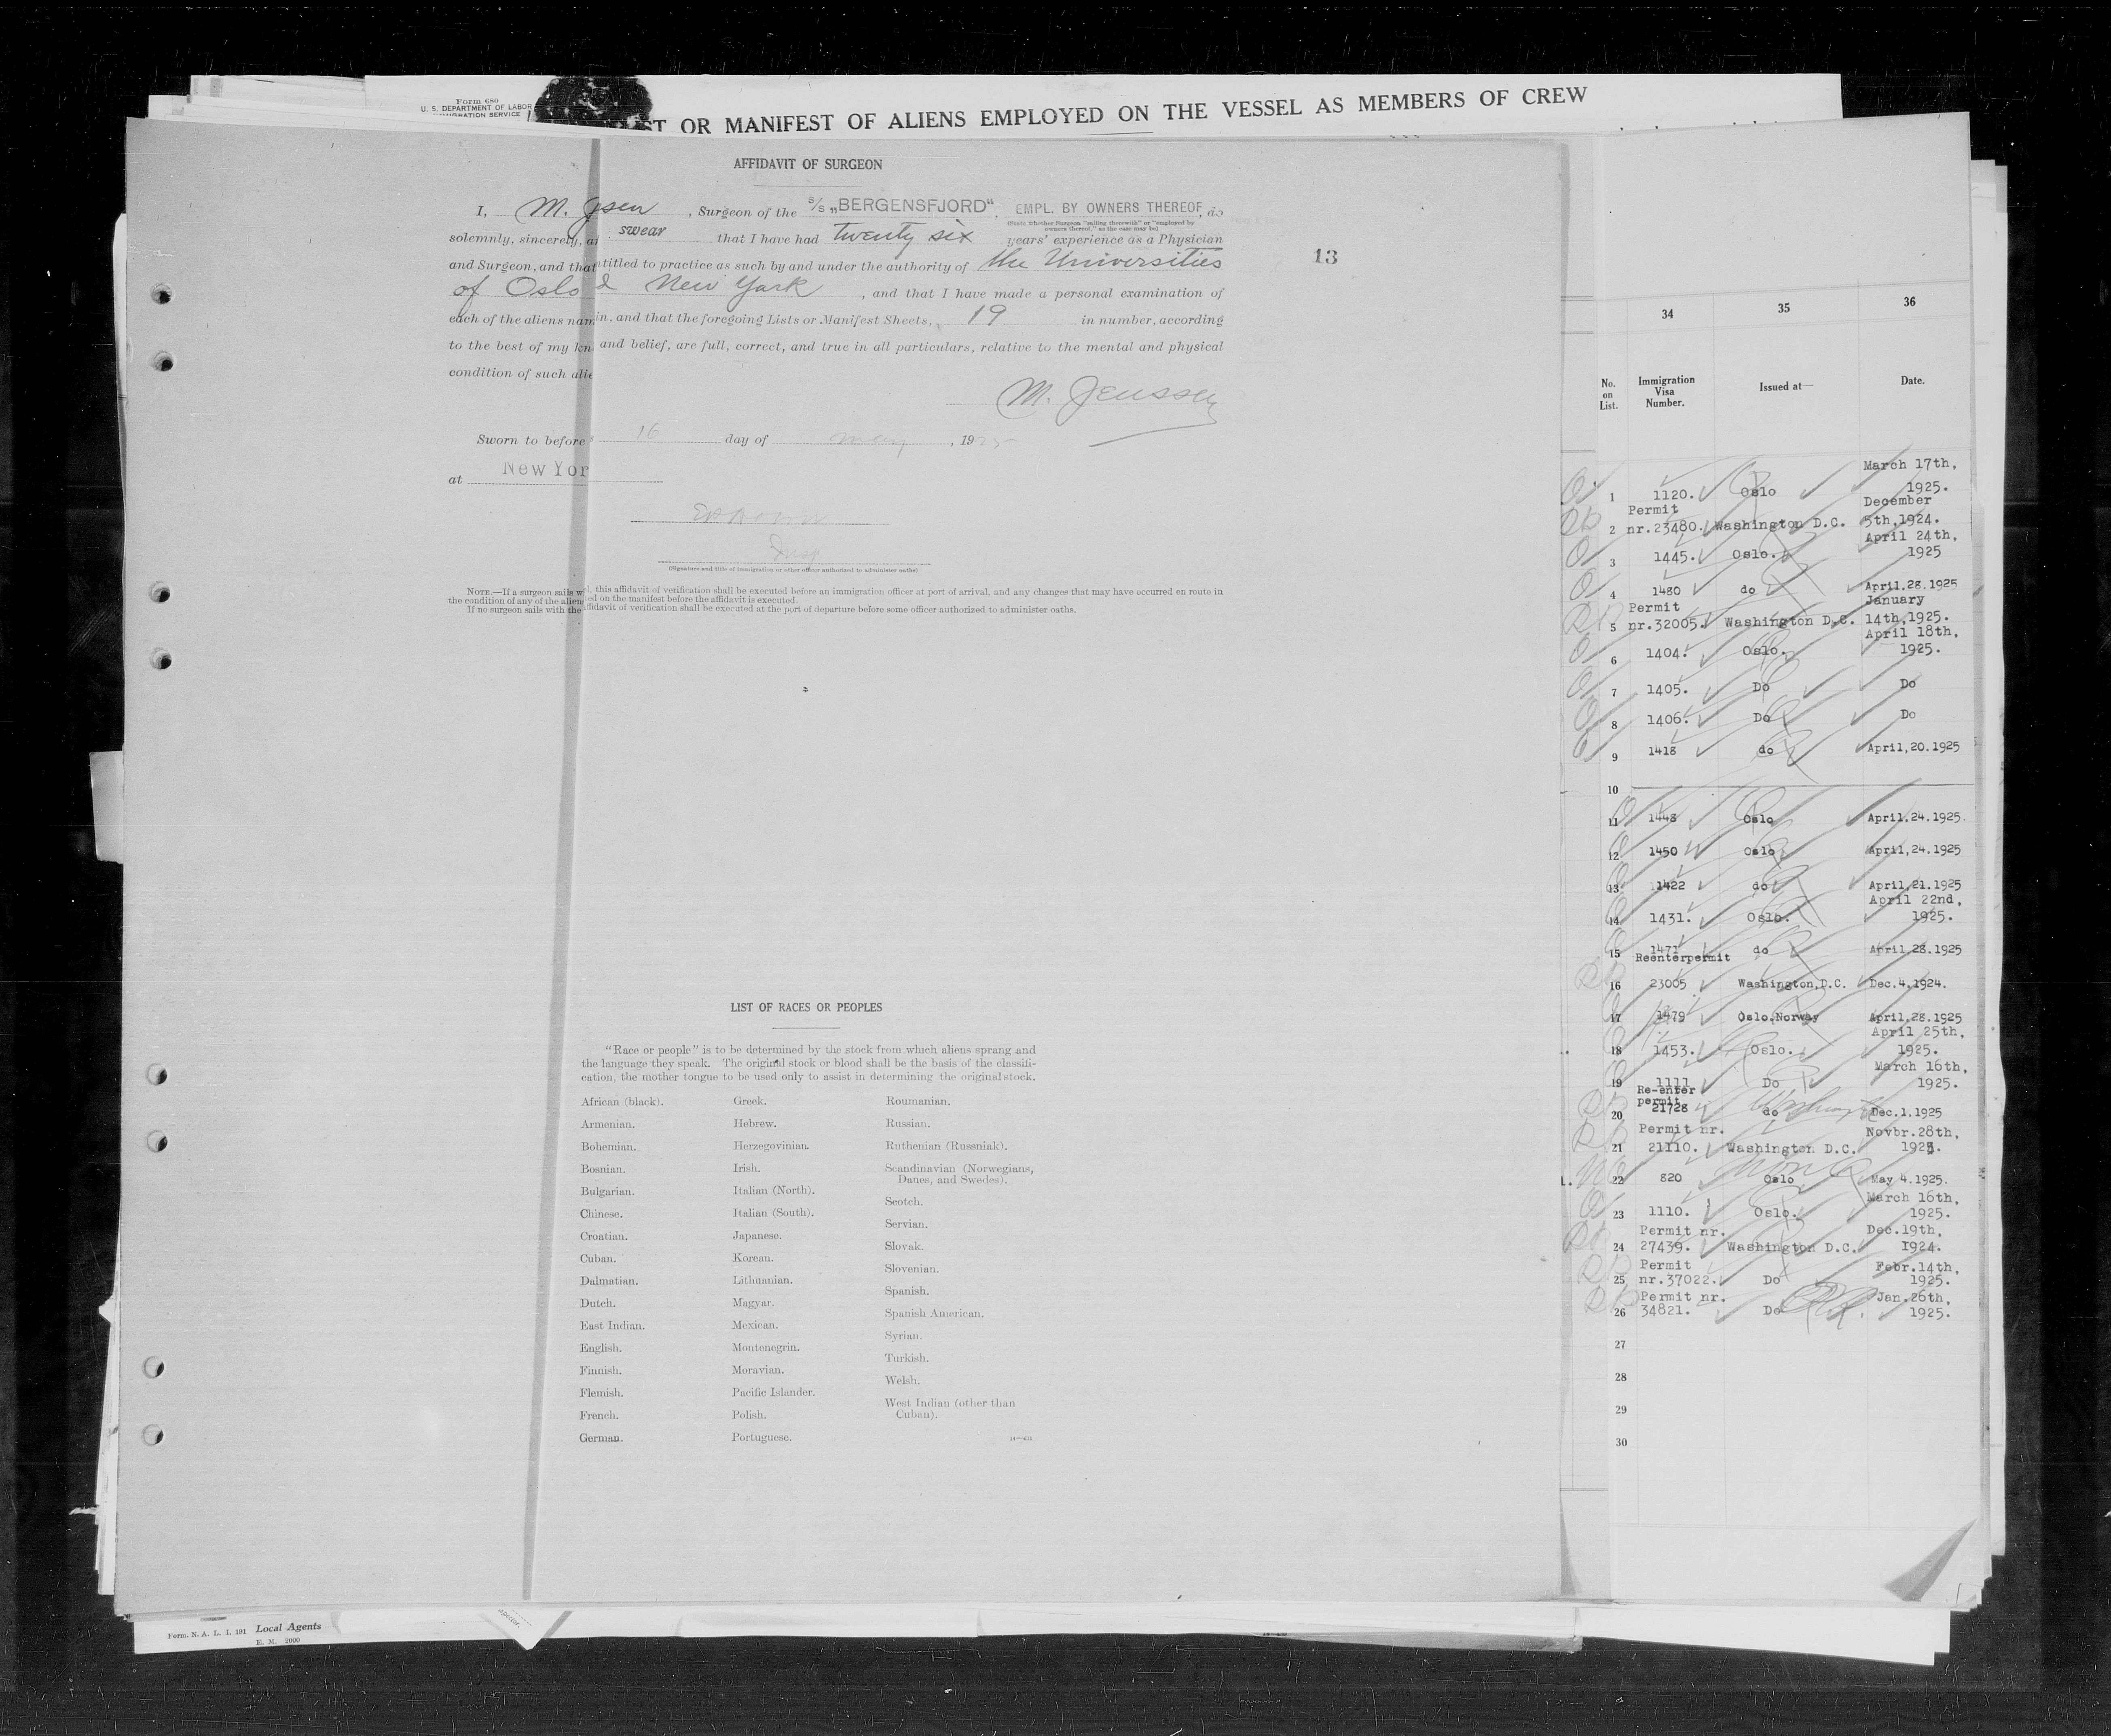 Form 680
U. S. DEPARTMENT OF LABOR
IMMIGRATION SERVICE
ST OR MANIFEST OF ALIENS EMPLOYED ON THE VESSEL AS MEMBERS OF CREW
AFFIDAVIT OF SURGEON
I, M. sen, Surgeon of the S/S „BERGENSFJORD“, EMPL. BY OWNERS THEREOF, do
(State whether Surgeon "sailing therewith" or "employed by
owners thereof," as the case may be)
solemnly, sincerely, a swear that I have had twenty six years' experience as a Physician
and Surgeon, and that titled to practice as such by and under the authority of the Universities
of Oslo & New York, and that I have made a personal examination of
each of the aliens nam in, and that the foregoing Lists or Manifest Sheets, 19 in number, according
to the best of my kn and belief, are full, correct, and true in all particulars, relative to the mental and physical
condition of such alie
M. Jenssen
Sworn to before 16 day of May, 1925
at New Yor
Insp
(Signature and title of immigration or other officer authorized to administer oaths)
NOTE.—If a surgeon sails w d, this affidavit of verification shall be executed before an immigration officer at port of arrival, and any changes that may have occurred en route in
the condition of any of the alien ed on the manifest before the affidavit is executed.
If no surgeon sails with the ffidavit of verification shall be executed at the port of departure before some officer authorized to administer oaths.
13
LIST OF RACES OR PEOPLES
"Race or people" is to be determined by the stock from which aliens sprang and
the language they speak. The original stock or blood shall be the basis of the classifi-
cation, the mother tongue to be used only to assist in determining the original stock.
African (black).
Armenian.
Bohemian.
Bosnian.
Bulgarian.
Chinese.
Croatian.
Cuban.
Dalmatian.
Dutch.
East Indian.
English.
Finnish.
Flemish.
French.
German.
Greek.
Hebrew.
Herzegovinian.
Irish.
Italian (North).
Italian (South).
Japanese.
Korean.
Lithuanian.
Magyar.
Mexican.
Montenegrin.
Moravian.
Pacific Islander.
Polish.
Portuguese.
Roumanian.
Russian.
Ruthenian (Russniak).
Scandinavian (Norwegians,
Danes, and Swedes).
Scotch.
Servian.
Slovak.
Slovenian.
Spanish.
Spanish American.
Syrian.
Turkish.
Welsh.
West Indian (other than
Cuban).
34 35 36
No. on List. Immigration Visa Number. Issued at— Date.
1 1120. Oslo March 17th, 1925.
2 Permit nr.23480. Washington D.C. December 5th,1924.
3 1445. Oslo. April 24th, 1925
4 1480 do April.28.1925
5 Permit nr.32005. Washington D.C. January 14th,1925.
6 1404. Oslo. April 18th, 1925.
7 1405. Do Do
8 1406. Do Do
9 1418 do April,20.1925
10
11 1448 Oslo April.24.1925.
12 1450 Oslo April,24.1925
13 1422 do April,21.1925
14 1431. Oslo. April 22nd, 1925.
15 1471 do April.28.1925
16 Reenterpermit 23005 Washington,D.C. Dec.4.1924.
17 1479 Oslo.Norway April.28.1925
18 1453. Oslo. April 25th, 1925.
19 1111 Do March 16th, 1925.
20 Re-enter permit 21728 do Dec.1.1925
21 Permit nr. 21110. Washington D.C. Novbr.28th,
22 820 Oslo May 4.1925.
23 1110. Oslo. March 16th, 1925.
24 Permit nr. 27439. Washington D.C. Dec.19th, 1924.
25 Permit nr.37022. Do Febr.14th, 1925.
26 Permit nr. 34821. Do Jan.26th, 1925.
27
28
29
30
Form. N. A. L. I. 191 Local Agents
E. M. 2000